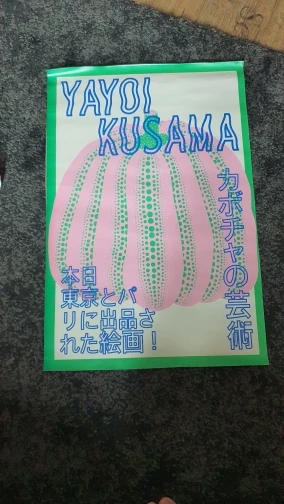 YAYOI
KUSAMA
カボチャの芸術
本日
東京とパ
リに出品さ
れた絵画！